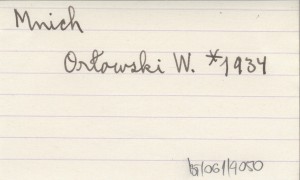 Mnich
Orłowski W. *1934
/06/14050